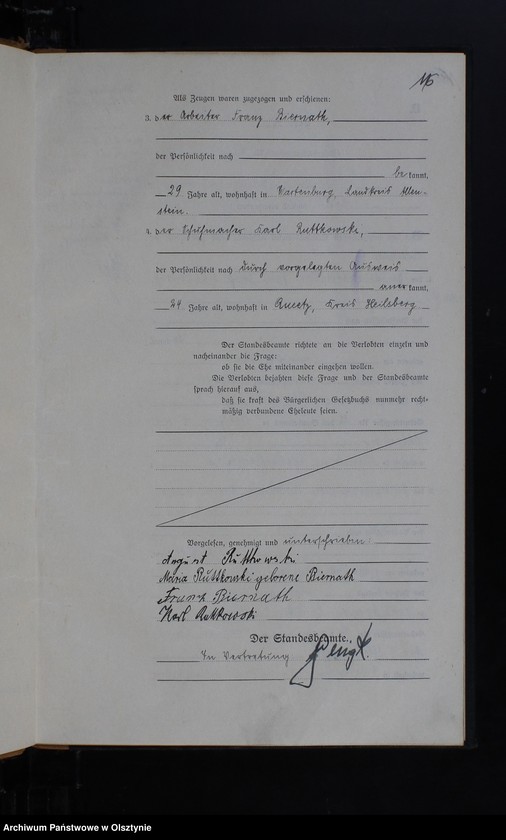 16
Als Zeugen waren zugezogen und erschienen:
3. der Arbeiter Franz Biernath,
der Persönlichkeit nach
be kannt,
29 Jahre alt, wohnhaft in Wartenburg, Landkreis Allen-
stein.
4. der Schuhmacher Karl Ruttkowski,
der Persönlichkeit nach durch vorgelegten Ausweis
aner kannt,
24 Jahre alt, wohnhaft in Queetz, Kreis Heilsberg
Der Standesbeamte richtete an die Verlobten einzeln und
nacheinander die Frage:
ob sie die Ehe miteinander eingehen wollen.
Die Verlobten bejahten diese Frage und der Standesbeamte
sprach hierauf aus,
daß sie kraft des Bürgerlichen Gesetzbuchs nunmehr recht-
mäßig verbundene Eheleute seien.
Vorgelesen, genehmigt und unterschrieben
August Ruttkowski
Maria Ruttkowski geborene Biernath
Franz Biernath
Karl Ruttkowski
Der Standesbeamte.,
In Vertretung
Archiwum Państwowe w Olsztynie